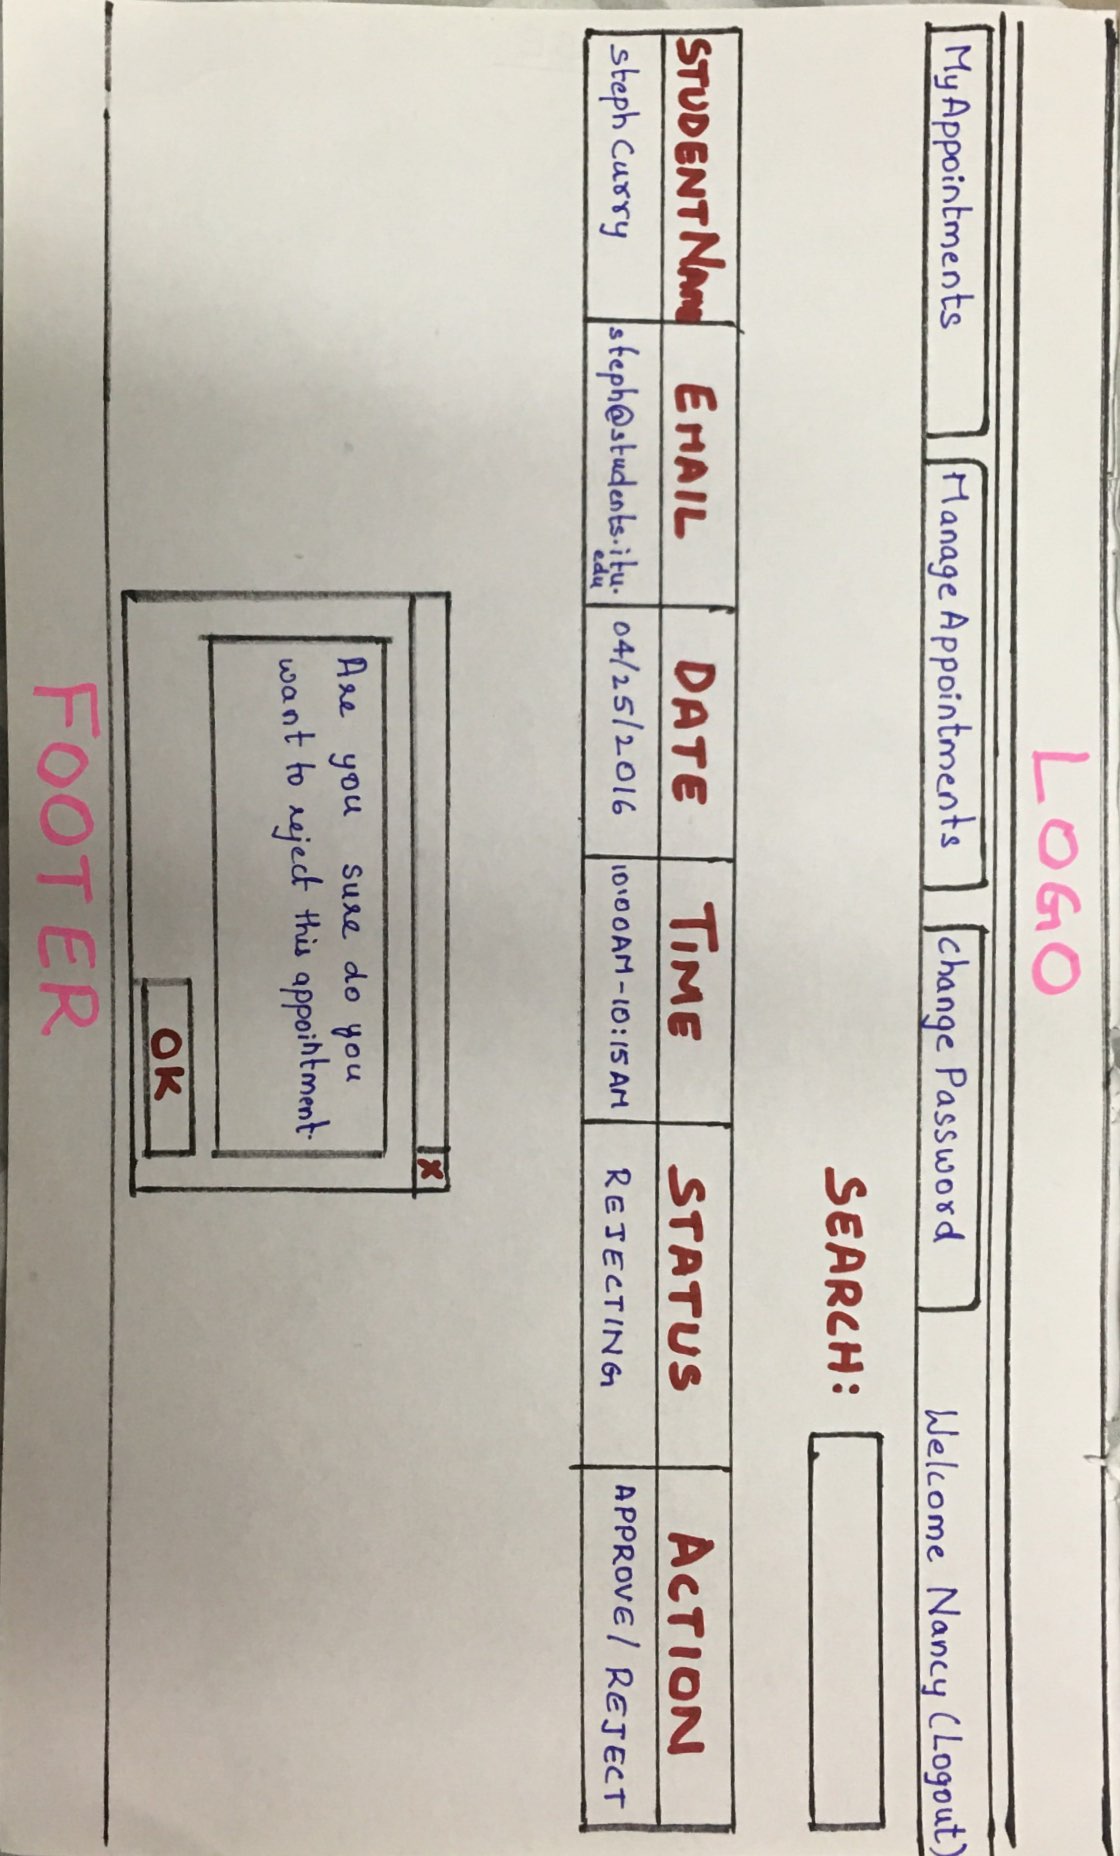 LOGO
My Appointments
Manage Appointments
Change Password
Welcome Nancy (Logout)
SEARCH:
STUDENT NAM
EMAIL
DATE
TIME
STATUS
ACTION
Steph Curry
steph@students.itu.
edu
04/25/2016
10:00AM-10:15AM
REJECTING
APPROVE/ REJECT
X
Are you sure do you
want to reject this appointment.
OK
FOOTER